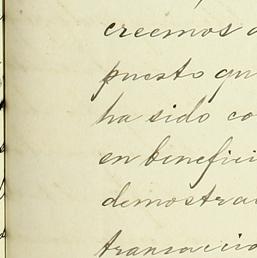 creemos
puesto qu
ha sido co
en benefici
demostra
transacci